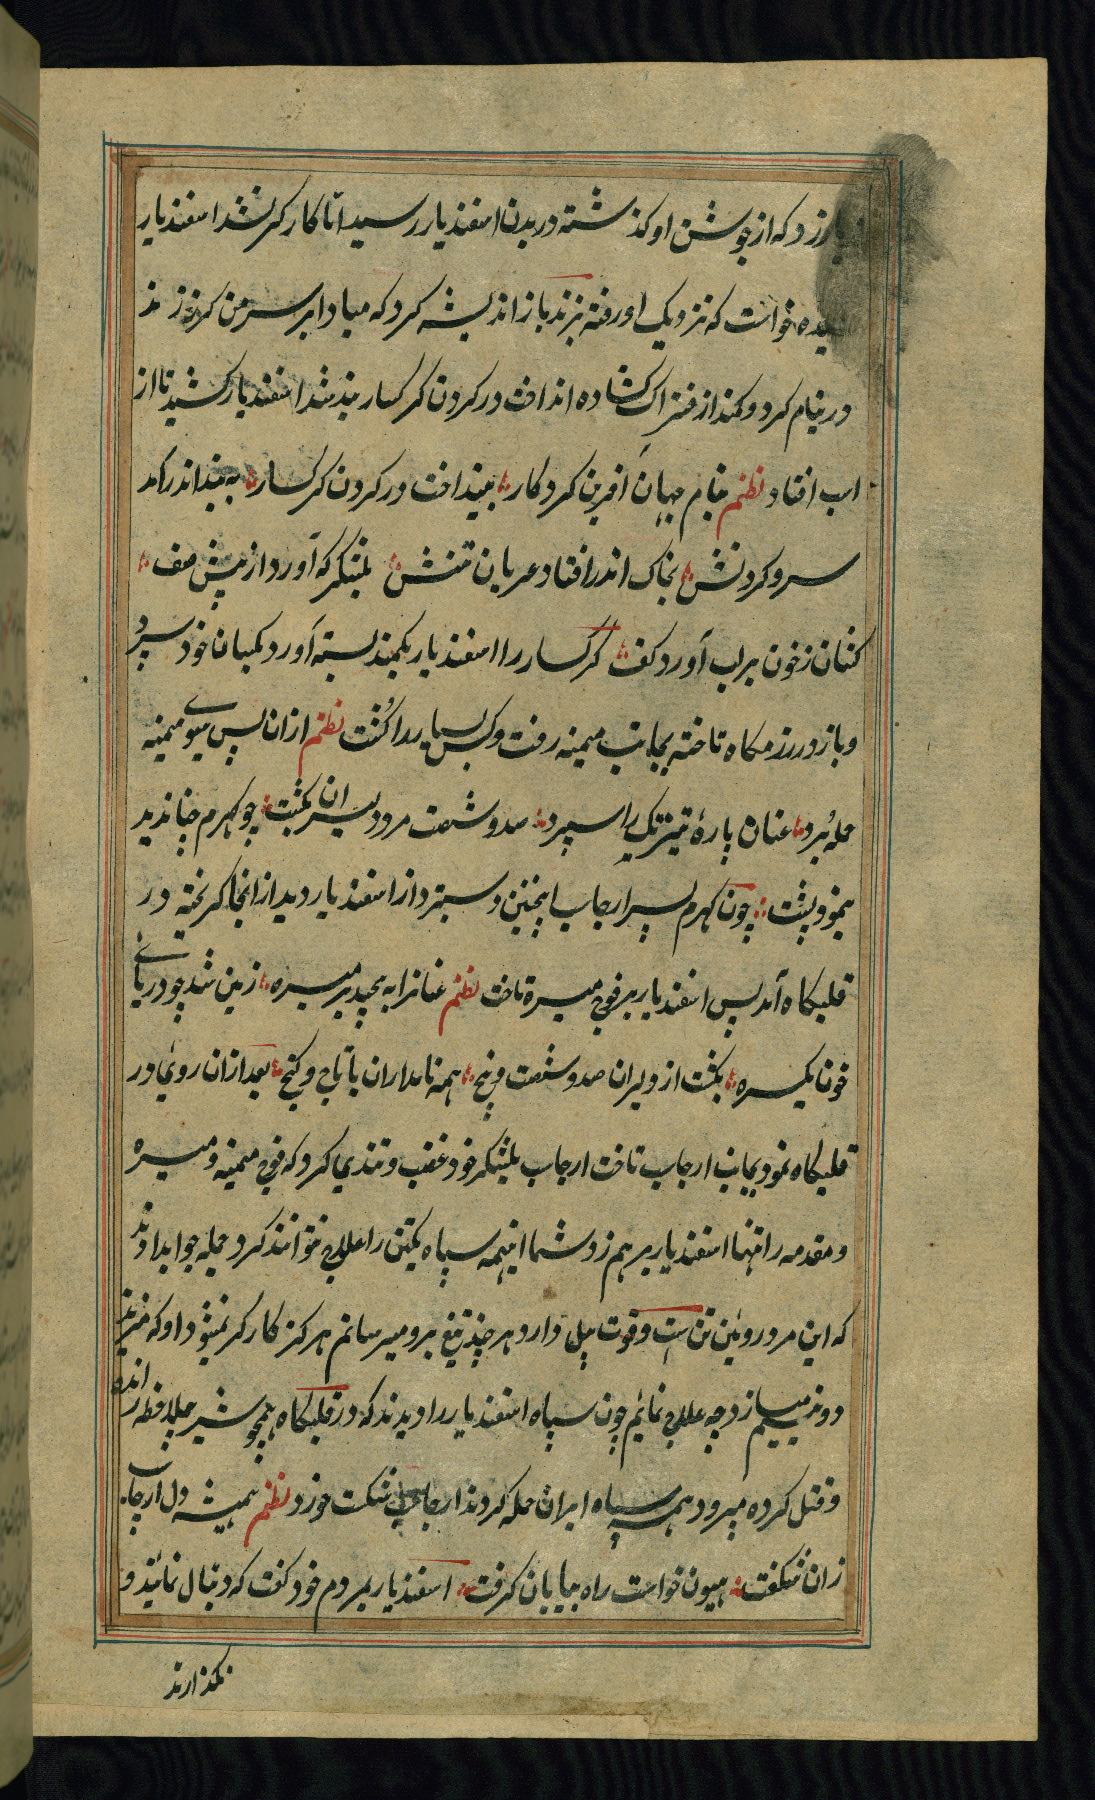 بارزد که از جوشن او گذشته در بدن اسفندیار رسید اما کارگر نشد اسفندیار
خواست که نزدیک او رفته بزند باز اندیشه کرد که مبادا بر سر من گرز زند
در نیام کرد و کمند از فتراک کشاده انداخت در گردن گرگسار بند شد اسفندیار کشید تا از
اسب افتاد نظم بنام جهان آفرین کردگار بینداخت در گردن گرگسار به بند اندر آمد
سر و گردنش بخاک اندر افتاد عریان تنش بلشکر که آورد از پیش صف
کنان ز خون بر لب آورد کف گرگسار را اسفندیار بکمند بسته آورد بکسان خود سپرد
و باز در رزمگاه تاخته بجانب میمنه رفت و کس بسیار را کُشت نظم ازان پس سوی میمنه
حمله بُرد عنان پارهٔ تیزتگ را سپرد صد و شصت مرد دلیران بکشت چو کهرم چنان دید
بنمود پشت چون کهرم پسر ارجاسپ اینچنین دستبرد از اسفندیار دید از انجا گریخته در
قلبگاه آمد پس اسفندیار بر فوج میسره تاخت نظم عنانرا به پیچید بر میسره زمین شد چو دریای
خون یکسره بکشت از دلیران صد و شصت و پنج همه نامداران با تاج و گنج بعد ازان روی در
قلبگاه نمود بجانب ارجاسپ تاخت ارجاسپ بلشکر خود غضب و تندی کرد که فوج میمنه و میسره
و مقدمه را تنها اسفندیار بر هم زد شما اینهمه سپاه یکتن را علاج نتوانند کرد جمله جواب دادند
که این مرد رویین تن است و قوت پیل دارد هر چند تیغ برو میرسانم هرگز کارگر نمیشود او که میزند
دو نیم میسازد چه علاج نمائیم چون سپاه اسفندیار را دیدند که در قلبگاه همچو شیر
و قتل کرده میرود همه سپاه ایران حمله کردند ارجاسپ شکست خورد نظم همیشه دل ارجاسپ
زان شگفت هیون خواست راه بیابان گرفت اسفندیار بمردم خود گفت که دنبال نمائید و
نگذارند